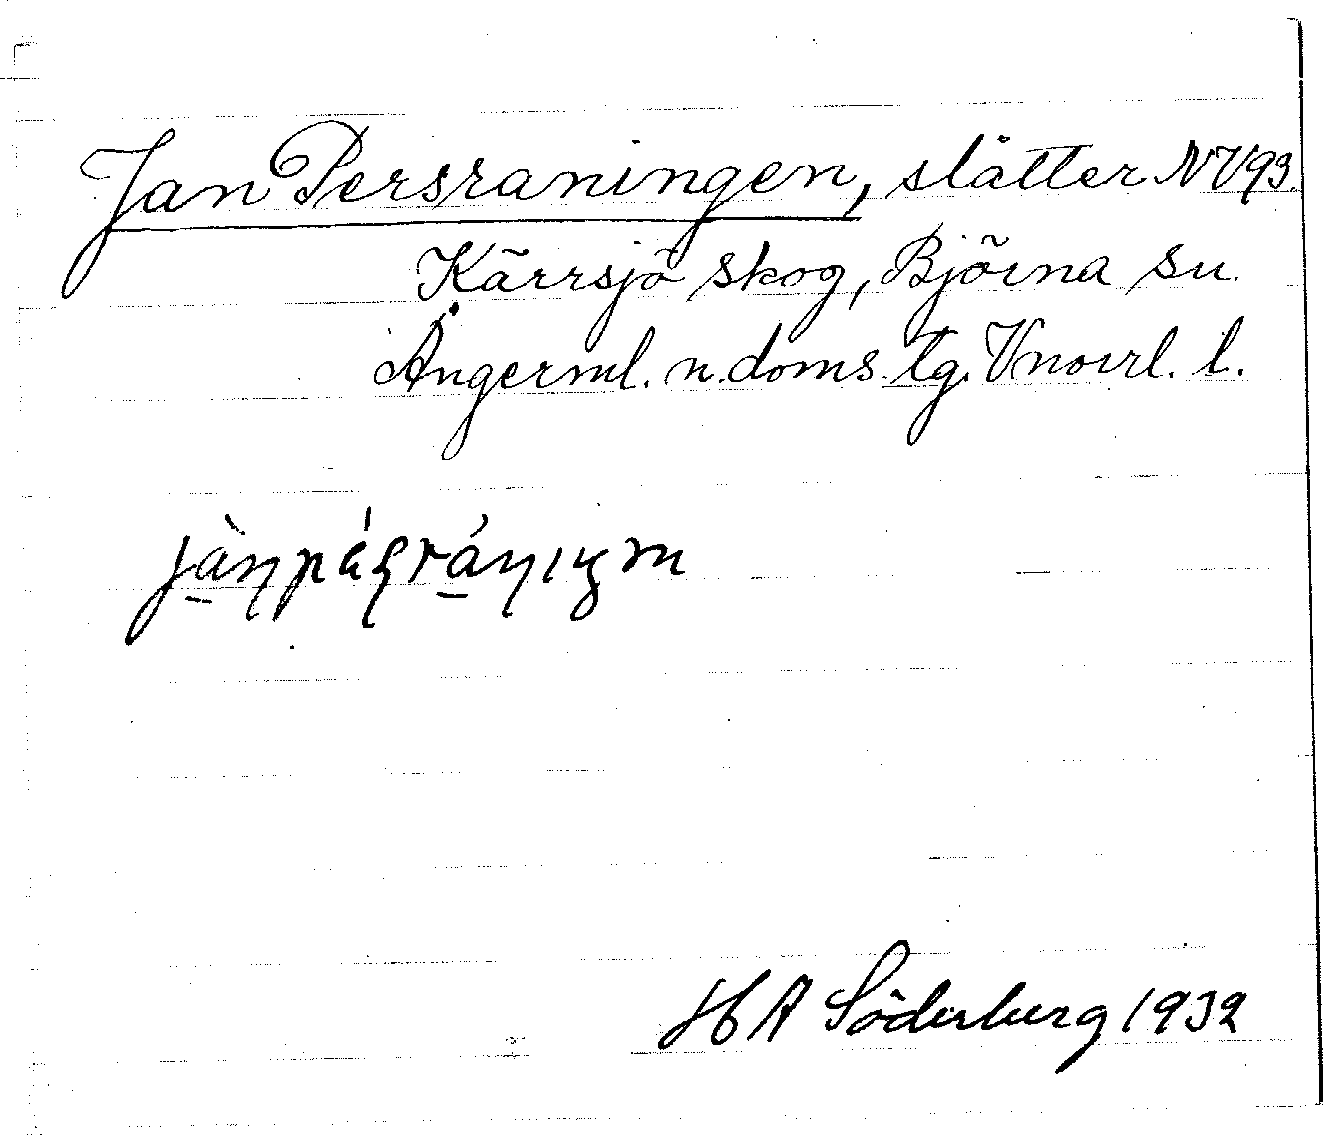 Jan Persraningen, slätter NV93.
Kärrsjö skog, Björna sn
Ångerml. n. doms. tg. Vnorrl. l.
H A Söderberg 1932